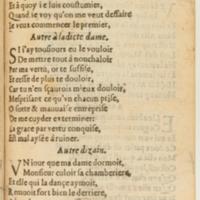 Et à quoy ie suis coustumier,
Quand ie voy qu'on me veut deffaire
Ie veux commencer le premier.
Autre à ladicte dame.
SI i'ay tousiours eu le vouloir
De mettre tout à nonchaloir
Par ma vertu, or te suffise,
Et cesse de plus te douloir,
Car tu n'en sçaurois mieux douloir,
Mesprisant ce qu'vn chacun prise,
O sotte & mauuaise entreprise
De me cuyder exterminer:
La grace par vertu conquise,
Est mal aysée à ruiner.
Autre dizain.
VN iour que ma dame dormoit,
Monsieur culoit sa chamberiere,
Et elle qui la dance aymoit,
Remuoit fort bien le derriere,